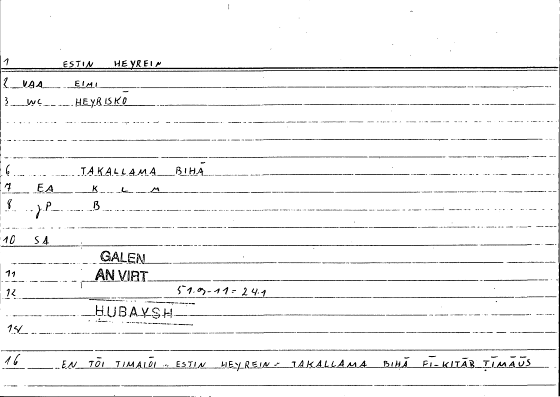 1 ESTIN HEYREIN
2 VAA EIMI
3 WC HEYRISKŌ
6 TAKALLAMA BIHĀ
7 EA K L M
8 jP B
10 SA
GALEN
11 AN VIRT
12 51.9-11=24.1
ḤUBAYSH
14
16 EN TŌI TIMAIŌI - ESTIN HEYREIN - TAKALLAMA BIHĀ FĪ-KITĀB ṬĪMĀUS